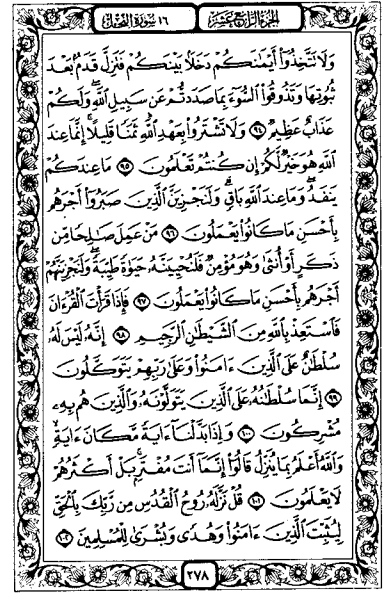 الجزء الرابع عشر ١٦ سورة النحل
وَلَا تَتَّخِذُوٓا۟ أَيْمَٰنَكُمْ دَخَلًۢا بَيْنَكُمْ فَتَزِلَّ قَدَمٌۢ بَعْدَ
ثُبُوتِهَا وَتَذُوقُوا۟ ٱلسُّوٓءَ بِمَا صَدَدتُّمْ عَن سَبِيلِ ٱللَّهِ ۖ وَلَكُمْ
عَذَابٌ عَظِيمٌ ٩٤ وَلَا تَشْتَرُوا۟ بِعَهْدِ ٱللَّهِ ثَمَنًا قَلِيلًا ۚ إِنَّمَا عِندَ
ٱللَّهِ هُوَ خَيْرٌ لَّكُمْ إِن كُنتُمْ تَعْلَمُونَ ٩٥ مَا عِندَكُمْ
يَنفَدُ ۖ وَمَا عِندَ ٱللَّهِ بَاقٍ ۗ وَلَنَجْزِيَنَّ ٱلَّذِينَ صَبَرُوٓا۟ أَجْرَهُم
بِأَحْسَنِ مَا كَانُوا۟ يَعْمَلُونَ ٩٦ مَنْ عَمِلَ صَٰلِحًا مِّن
ذَكَرٍ أَوْ أُنثَىٰ وَهُوَ مُؤْمِنٌ فَلَنُحْيِيَنَّهُۥ حَيَوٰةً طَيِّبَةً ۖ وَلَنَجْزِيَنَّهُمْ
أَجْرَهُم بِأَحْسَنِ مَا كَانُوا۟ يَعْمَلُونَ ٩٧ فَإِذَا قَرَأْتَ ٱلْقُرْءَانَ
فَٱسْتَعِذْ بِٱللَّهِ مِنَ ٱلشَّيْطَٰنِ ٱلرَّجِيمِ ٩٨ إِنَّهُۥ لَيْسَ لَهُۥ
سُلْطَٰنٌ عَلَى ٱلَّذِينَ ءَامَنُوا۟ وَعَلَىٰ رَبِّهِمْ يَتَوَكَّلُونَ
٩٩ إِنَّمَا سُلْطَٰنُهُۥ عَلَى ٱلَّذِينَ يَتَوَلَّوْنَهُۥ وَٱلَّذِينَ هُم بِهِۦ
مُشْرِكُونَ ١٠٠ وَإِذَا بَدَّلْنَآ ءَايَةً مَّكَانَ ءَايَةٍ ۙ
وَٱللَّهُ أَعْلَمُ بِمَا يُنَزِّلُ قَالُوٓا۟ إِنَّمَآ أَنتَ مُفْتَرٍۭ ۚ بَلْ أَكْثَرُهُمْ
لَا يَعْلَمُونَ ١٠١ قُلْ نَزَّلَهُۥ رُوحُ ٱلْقُدُسِ مِن رَّبِّكَ بِٱلْحَقِّ
لِيُثَبِّتَ ٱلَّذِينَ ءَامَنُوا۟ وَهُدًى وَبُشْرَىٰ لِلْمُسْلِمِينَ ١٠٢
٢٧٨